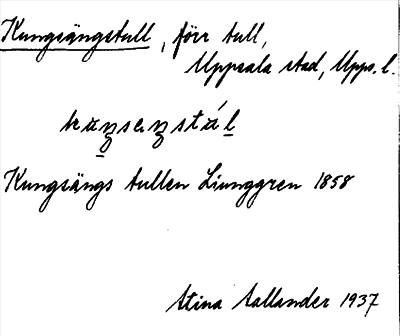 Kungsängstull, förr tull,
Uppsala stad, Upps. l.
Kungsängs tullen Ljunggren 1858
Stina Sallander 1937